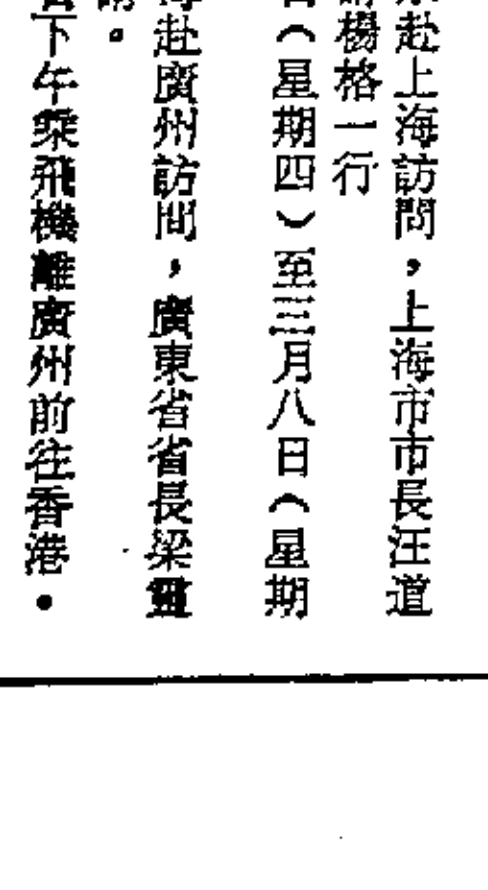 赴上海訪問，上海市市長汪道
楊格一行
（星期四）至三月八日（星期
赴廣州訪問，廣東省省長梁靈
。
下午乘飛機離廣州前往香港．